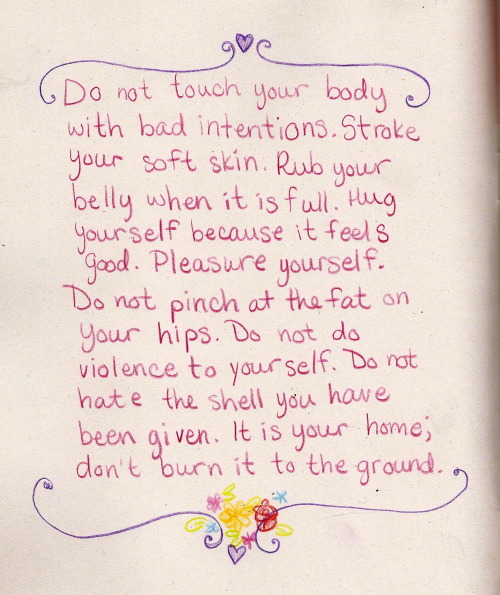 Do not touch your body
with bad intentions. Stroke
your soft skin. Rub your
belly when it is full. Hug
yourself because it feels
good. Pleasure yourself.
Do not pinch at the fat on
your hips. Do not do
violence to yourself. Do not
hate the shell you have
been given. It is your home;
don't burn it to the ground.